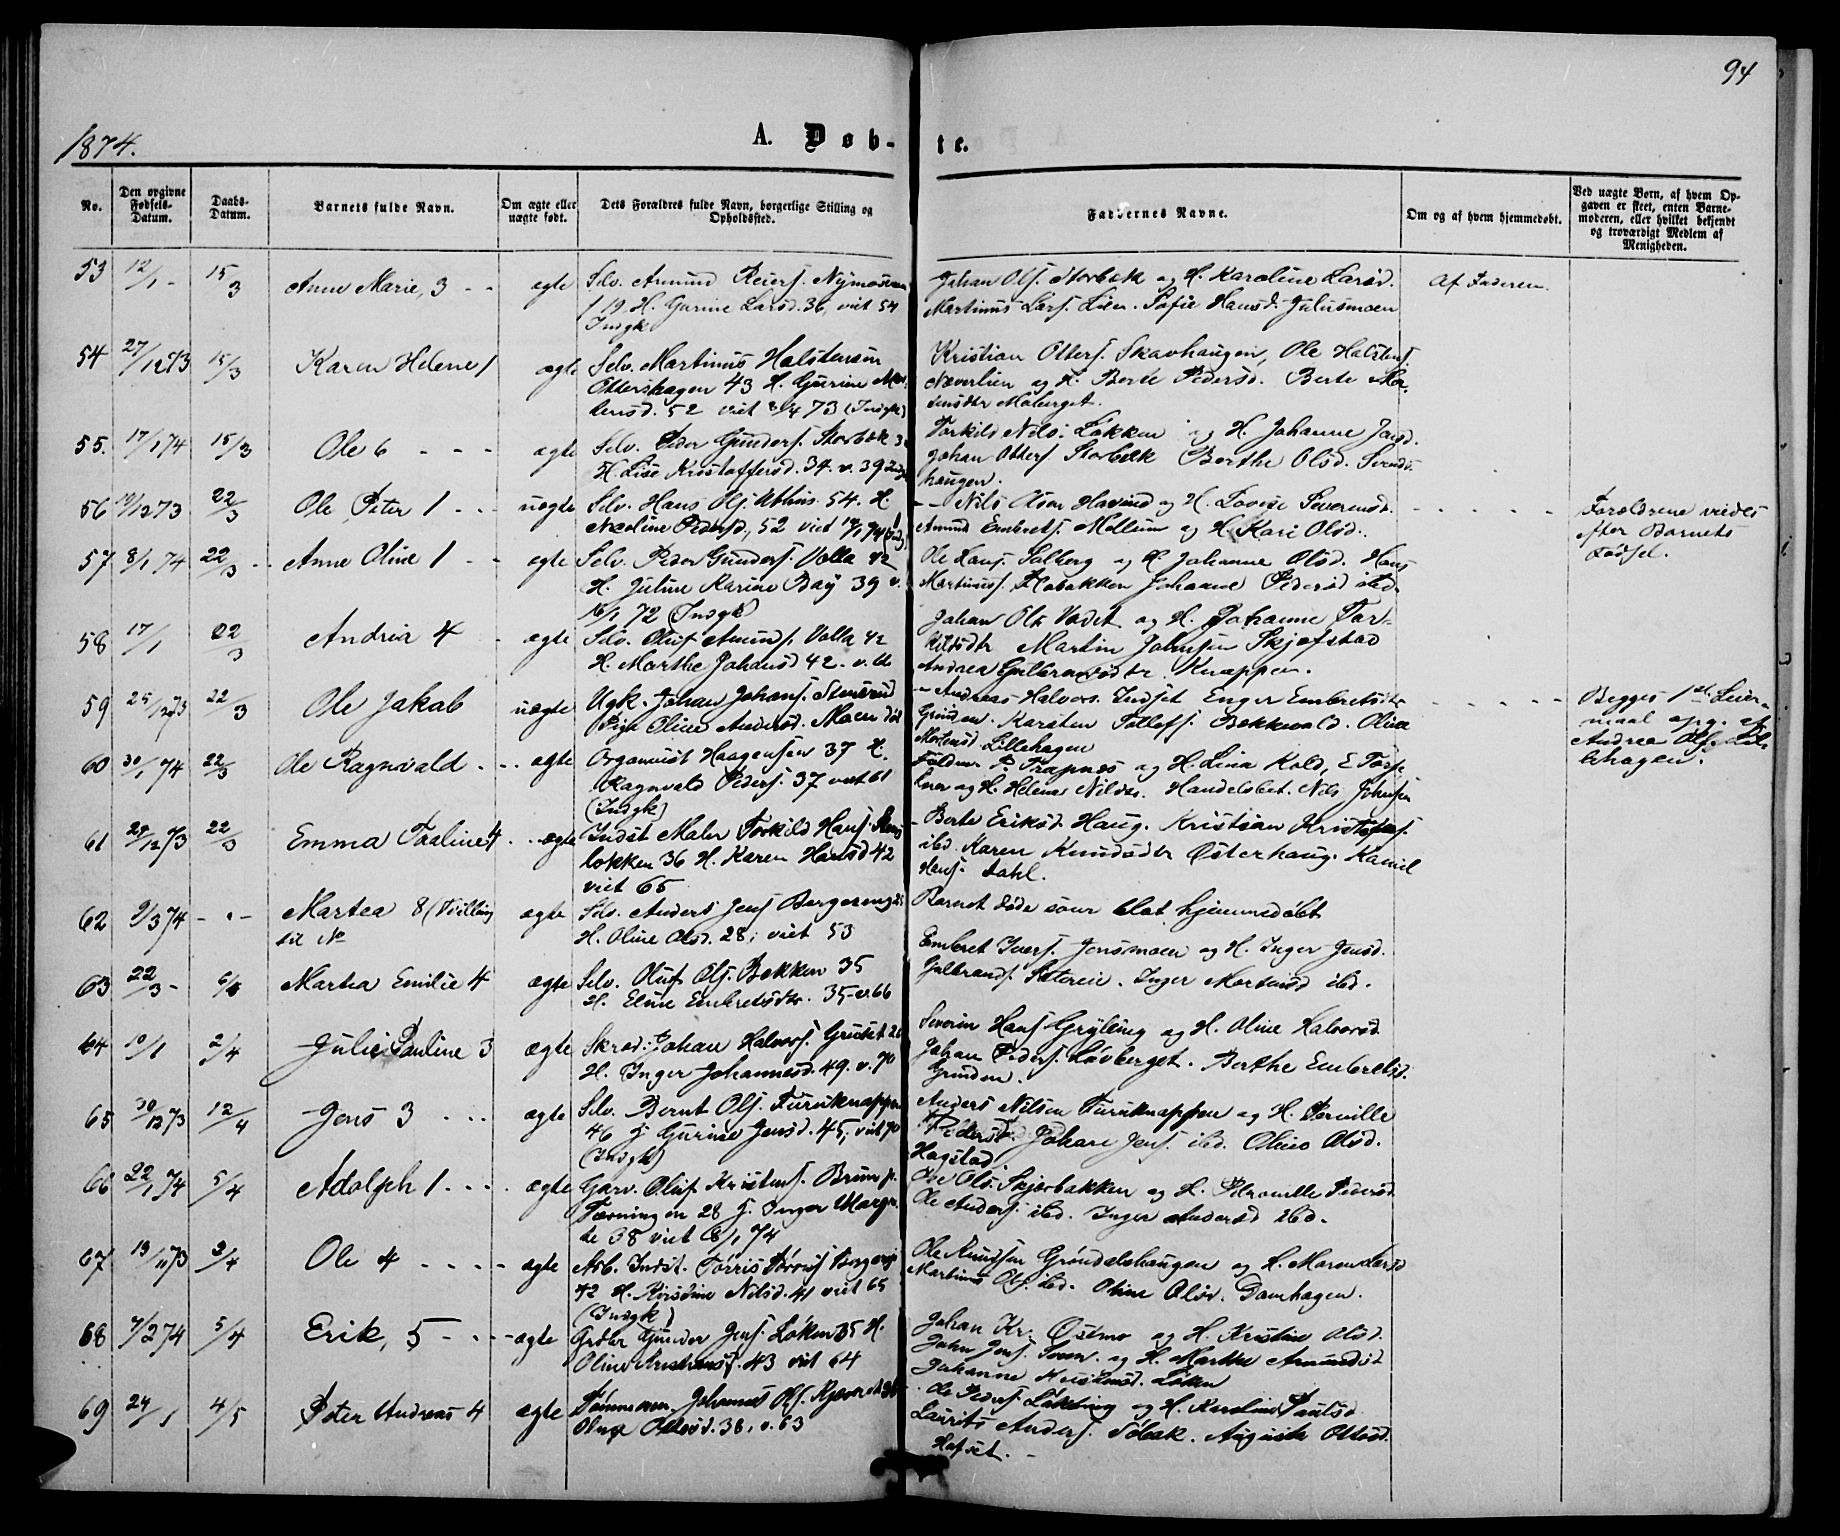 94
1874.
A. Døb-
te.
No.
Den opgivne Fødsels-Datum.
Daabs-Datum.
Barnets fulde Navn.
Om ægte eller uægte født.
Dets Forældres fulde Navn, borgerlige Stilling og Opholdssted.
Faddernes Navne.
Om og af hvem hjemmedøbt.
Ved uægte Børn, af hvem Opgaven er skeet, enten Barnemoderen, eller hvilket bekjendt og troværdigt Medlem af Menigheden.
53 12/1 - 15/3 Anne Marie, 3 - - ægte Selv. Amund Reiers.
19 H. Gurine Larsd. 36, viet 54
Indgk
Johan Ols. Storbæk og H. Karoline Larsd.
Martinus Lars. Lien. Sofie Hansd. Julusmoen
Af Faderen.
54 27/12 73 15/3 Karen Helene 1 ægte Selv. Martinus Halstensen
Otterskagen 43 H. Gurine Mor-
tensd. 52 viet 8/4 73 (Indgk)
Kristian Otters. Skavhaugen, Ole Halstens.
Næverlien og H. Berte Pedersd. Berte Mor-
tensdtr Moberget.
55. 17/1 74 15/3 Ole 6 - - - ægte Selv. Peder Gunders. Storbæk
H. Lise Kristoffersd. 34. v. 39
Torkild Nils. Løkken og H. Johanne Jonsd.
Johan Otters. Storbæk Berthe Olsd. Svends-
haugen.
56 /12 73 22/3 Ole Peter 1 - - - uægte Selv. Hans Ols. 54. H.
Nicoline Pedersd. 52 viet 74
Nils Olsen Havind og H. Lovise Severinsd.
Amund Embrets. Mellum og H. Kari Olsd.
Forældrene viedes
efter Barnets
Fødsel.
57 8/1 74 22/3 - - Anne Oline 1 - - ægte Selv. Peder Gunders. Volla 42
H. Juline Karine Bay 39 v.
16/1 72 (Indgk)
Ole Hans. Solberg og H. Johanne Olsd. Hans
Martinus. Flobakken Johanne Pedersd ibd.
58 17/1 22/3 Andrea 4 - ægte Selv. Oluf Amunds. Volla 42
H. Marthe Johansd 42. v.
Johan Ols. Vadet og H. Johanne Tor-
kildsdtr Martin Johnsen Skjefstad
Andrea Gulbrandsdtr. Knappen.
59 25/12 73 22/3 Ole Jakob uægte Ugk. Johan Johans. Stensrud
Pige Oline Andersd. Moen
Andreas Halvors. Indset Enger Embretsdtr
Grinden. Karsten Tollefs. Bekkevold. Oline
Mortensd Lillehagen
Begges 1ste Leier-
maal opg. af
Andrea Lil-
lehagen.
60 30/1 74 22/3 Ole Ragnvald - - - ægte Organist Haagensen 37 H.
Ragnvald Peders. 37 viet 61
(Indgk)
P. Trapnes og H. Lina Kold, E
og H. Helene Nilsdr. Handelsbet. Nils Johnsen
61 29/12 73 22/3 Emma Paaline 4 - - ægte Indst. Maler Torkild Hans. Stens-
løkken 36 H. Karen Hansd 42
viet 65
Berte Eriksd. Haug. Kristian Kristofers.
ibd. Karen Knudsdtr Østerhaug. Kamil
Hans. Dahl.
62 9/3 74 - - - Martea 8 (Tvilling
til No
ægte Selv. Anders Jens. Borgerenget
H. Oline Olsd. 28, viet 53
Barnet døde som blot hjemmedøbt
63 22/3 - Martea Emilie 4 ægte Selv. Oluf Ols. Bakken 35
H. Eline Embretsdtr. 35 - v. 66
Embret Ivers. Jensmoen og H. Inger Jensd.
Gulbrand. Inger Mortensd ibd.
64 10/1 2/4 Julie Pauline 3 ægte Skræd: Johan Halvors. Grinset
H. Inger Johannesd. 49. v. 70
Severin Hans. Grylling og H. Oline Halvorsd.
Johan Peders. Løvberget. Berthe Embretsd.
Grinden.
65 30/12 73 12/4 Jens 3 - - - ægte Selv. Bernt Ols. Furuknappen
46 H. Gurine Jensd. 45, viet 70
(Indgk)
Anders Nilsen Furuknappen og H.
Pedersd. Johan Jens. ibd. Oline Olsd.
Hagstad
66 22/1 74 5/4 Adolph 1 - - - ægte Garv. Oluf Kristens.
Terningen 28 H. Inger Margre-
te 38 viet 8/1 74
Ole Ols. Skjærbakken og H. Petronille Pedersd.
Ole Anders. ibd. Inger Andersd ibd.
67 13/11 73 3/4 Ole 4 - - - - ægte Arb. Indst. Torris
42 H. Kirstine Nilsd. 41 viet 65
(Indgk)
Ole Knudsen Grøndalshaugen og H. Maren Larsd
Martinus Ols. ibd. Oline Olsd. Damhagen.
68 7/2 74 5/4 Erik, 5 - - - ægte Gunder Jens. Løken 35 H.
Oline Kristens. 43 viet 64
Johan Kr. Østmo og H. Kristine Olsd.
John Jens. Sveen. og H. Marthe Amundsd
Johanne Kristensd. Løken
69 24/1 4/5 Peter Andreas 4 ægte Tømmerm. Johannes Ols.
Olsd. 38, v. 63
Ole Peders. Løkting og H. Karoline Paulsd
Laurits Anders. Søbak. Auguste Olsd.